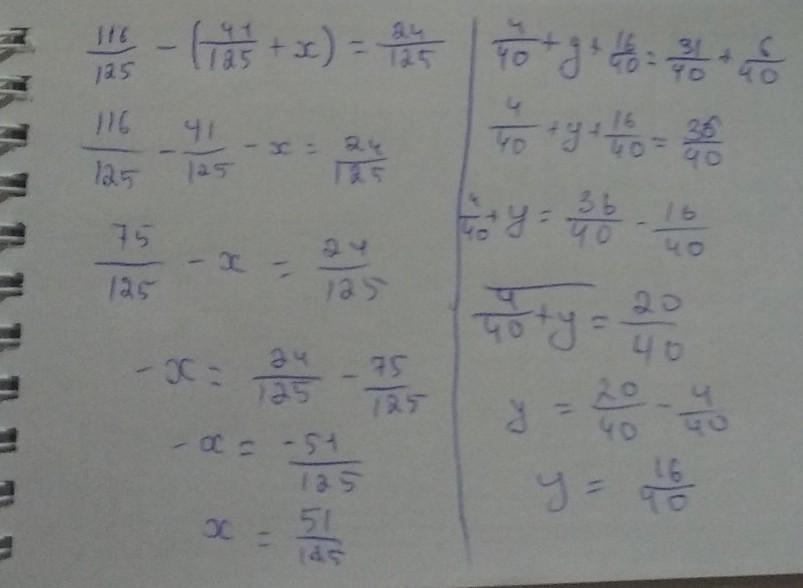 116/125 - (41/125 + x) = 24/125
116/125 - 41/125 - x = 24/125
75/125 - x = 24/125
-x = 24/125 - 75/125
-x = -51/125
x = 51/125
4/40 + y + 16/40 = 31/40 + 5/40
4/40 + y + 16/40 = 36/40
4/40 + y = 36/40 - 16/40
4/40 + y = 20/40
y = 20/40 - 4/40
y = 16/40